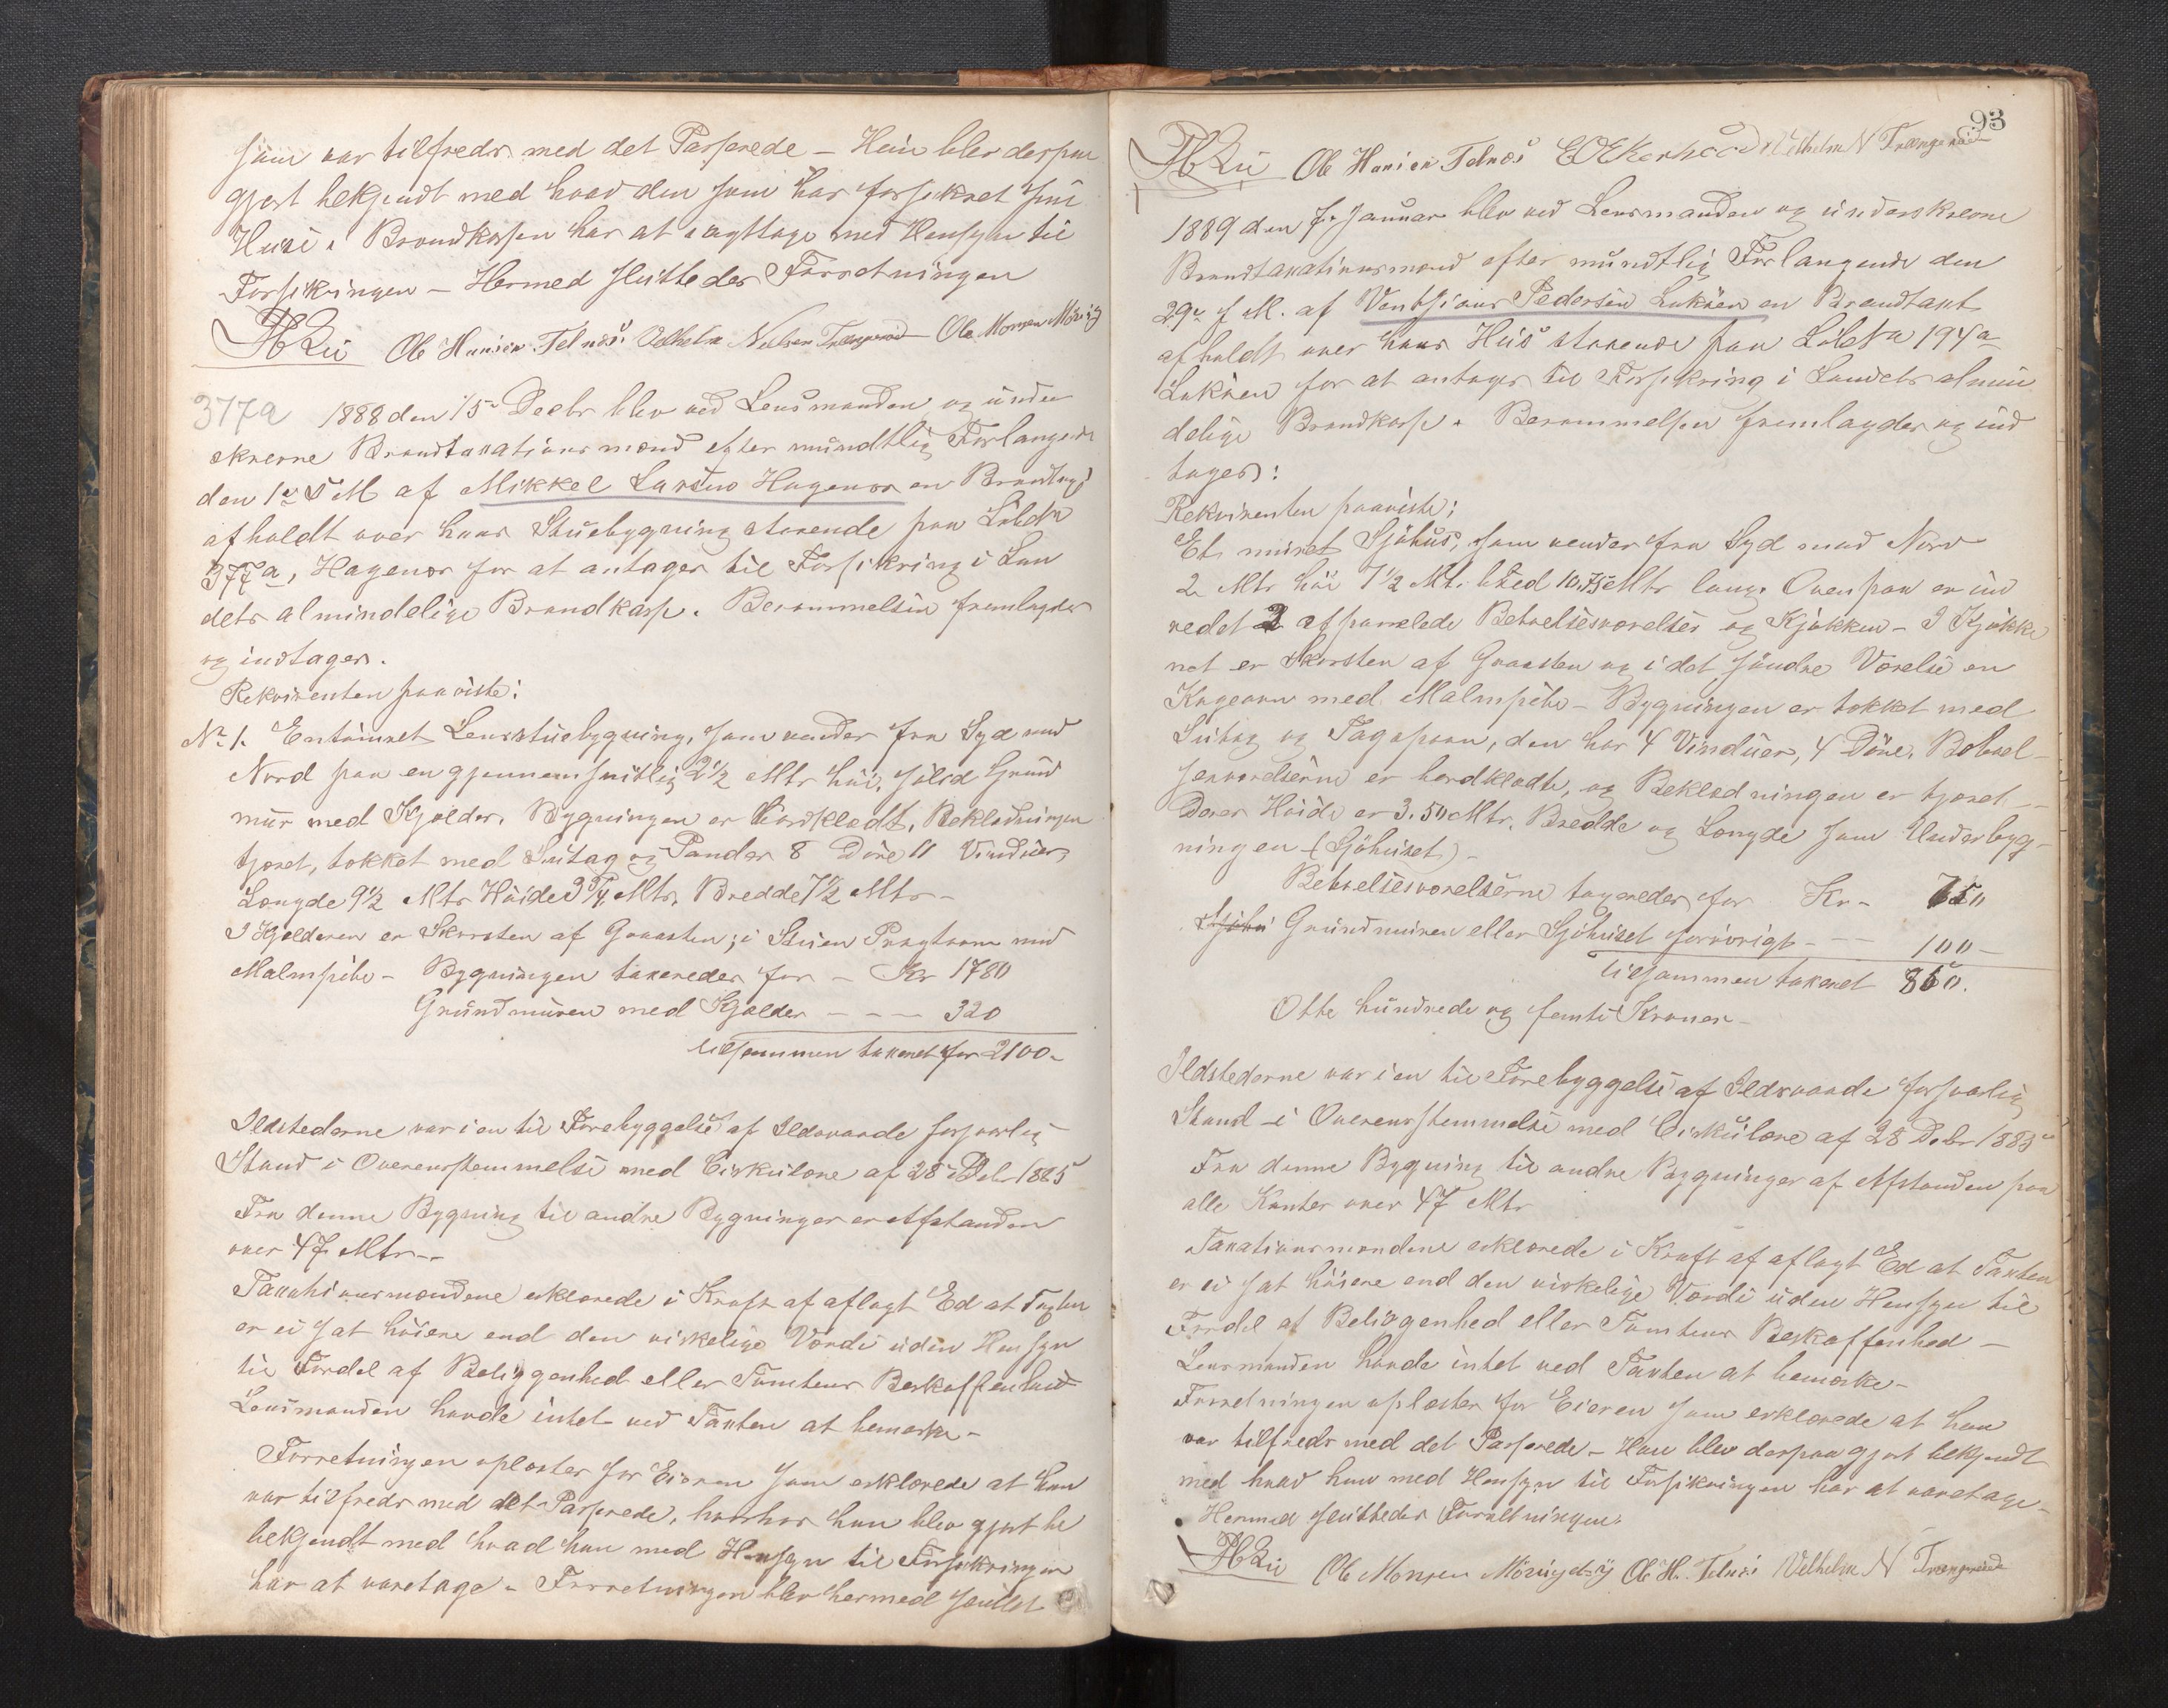 som var tilfreds med det Passerede – Hun blev derpaa
gjort bekjendt med hvad den som har forsikret sine
Huse i Brandkassen har at iagttage med Hensyn til
Forsikringen – Hermed sluttedes Forretningen
Ole Hansen Telnæs Vilhelm Nielsen Ole Monsen
377a 1888 den 15de Decbr blev ved Lensmanden og under
skrevne Brandtaxationsmænd efter mundtlig Forlangende
den 1ste d M af Mikkel Larsen Hagenæs en Brandtaxt
afholdt over hans Stuebygning staaende paa LøbeNr
377a, Hagenæs for at antages til Forsikring i Lan
dets almindelige Brandkasse. Berammelsen fremlagdes
og indtages.
Rekvirenten paaviste:
No 1. En tømret Lensstuebygning, som vender fra Syd mod
Nord paa en gjennemsnitlig 2 1/2 Mtr høi, solid Grund
mur med Kjelder. Bygningen er bordklædt, Beklædningen
tjæret, tækket med Sutag og Pander 8 Døre 11 Vinduer,
Længde 9 1/2 Mtr Høide 3 3/4 Mtr. Bredde 7 1/2 Mtr –
I Kjelderen er Skorsten af Graasten; i Stuen Pragtovn med
Malmpibe – Bygningen taxeredes for – Kr 1780
Grundmuren med Kjelder – – – 320
tilsammen taxeret for 2100 –
Ildstederne var i en til Forebyggelse af Ildsvaade forsvarlig
Stand i Overensstemmelse med Cirkulære af 28de Debr 1885
Fra denne Bygning til andre Bygninger er Afstanden
over 47 Mtr –
Taxationsmændene erklærede i Kraft af aflagt Ed at Taxten
er ei sat høiere end den virkelige Værdi uden Hensyn
til Fordel af Beliggenhed eller Tomtens Beskaffenhed
Lensmanden havde intet ved Taxten at bemærke –
Forretningen oplæstes for Eieren som erklærede at han
var tilfreds med det Passerede, hvorhos han blev gjort be
bekjendt med hvad han med Hensyn til Forsikringen
har at varetage – Forretningen blev hermed sluttet
93
Ole Hansen Telnæs Vilhelm N
1889 den 7. Januar blev ved Lensmanden og underskrevne
Brandtaxationsmænd efter mundtlig Forlangende den
29de f M. af Pedersen Lukøen en Brandtaxt
afholdt over hans Hus staaende paa LøbeNo 194a
Lukøen for at antages til Forsikring i Landets almin
delige Brandkasse. Berammelsen fremlagdes og ind
tages:
Rekvirenten paaviste:
Et muret Sjøhus, som vender fra Syd mod Nord
2 Mtr høi 7 1/2 Mt. bred 10,75 Mtr lang. Ovenpaa er ind
redet 2 afpanelede Beboelsesværelser og Kjøkken – I Kjøkke
net er Skorsten af Graasten og i det søndre Værelse en
Kogeovn med Malmpibe – Bygningen er tækket med
Sutag og Tagspaan, den har 4 Vinduer, 4 Døre. Beboel-
sesværelserne er bordklædte, og Beklædningen er tjæret –
Deres Høide er 3.50 Mtr, Bredde og Længde som Underbyg-
ningen (Sjøhuset) –
Beboelsesværelserne taxeredes for Kr – 750
Grundmuren eller Sjøhuset forøvrigt – – – 100 –
tilsammen taxeret 850.
Otte hundrede og femti Kroner –
Ildstederne var i en til Forebyggelse af Ildsvaade forsvarlig
Stand i Overensstemmelse med Cirkulære af 28 Debr 1885
Fra denne Bygning til andre Bygninger af Afstanden paa
alle Kanter over 47 Mtr
Taxationsmændene erklærede i Kraft af aflagt Ed at Taxten
er ei sat høiere end den virkelige Værdi uden Hensyn til
Fordel af Beliggenhed eller Tomtens Beskaffenhed –
Lensmanden havde intet ved Taxten at bemærke –
Forretningen oplæstes for Eieren som erklærede at han
var tilfreds med det Passerede – Han blev derpaa gjort bekjendt
med hvad han med Hensyn til Forsikringen har at varetage –
Hermed sluttedes Forretningen.
Ole Monsen Ole H. Telnæs Vilhelm N